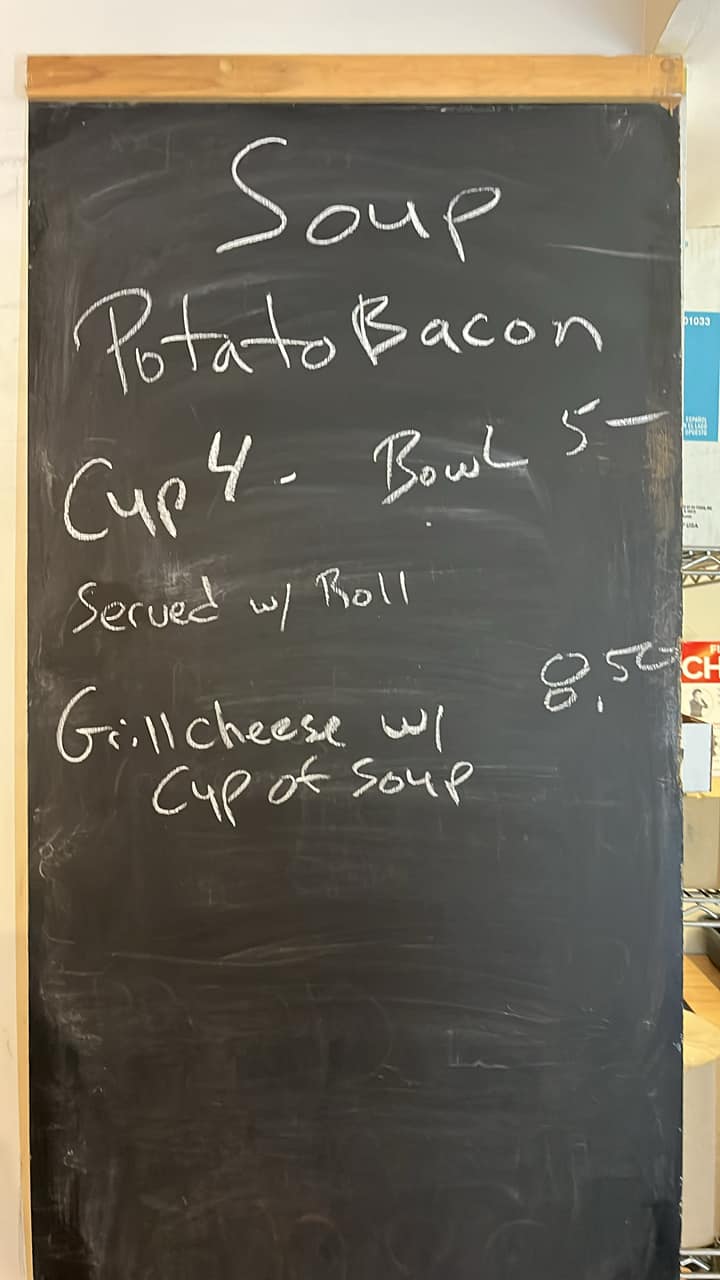 Soup
Potato Bacon
Cup 4 - Bowl 5 -
Served w/ Roll
8.50
Grill cheese w/
Cup of Soup
01033
ESPAÑOL
USA
CH